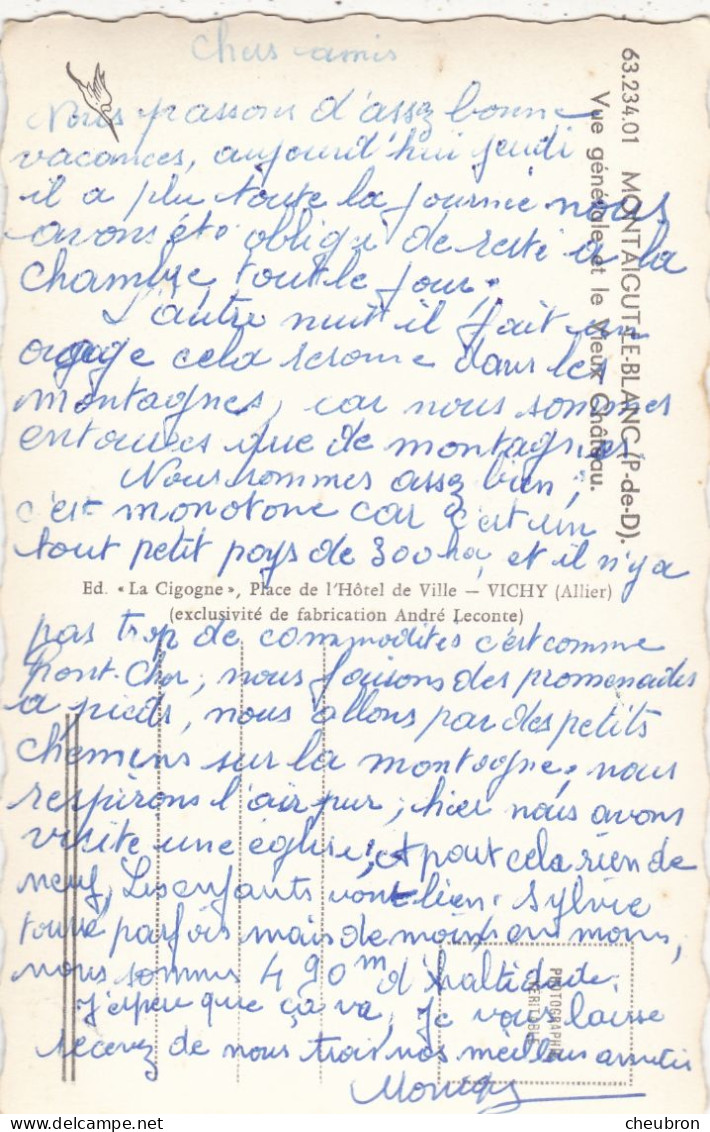 Chers amis
Nous passons d'assez bonne
vacances, aujourd'hui jeudi
il a plu toute la journée nous
avons été obligé de resté à la
chambre tout le jour,
L'autre nuit il fait un
orage cela resonne dans les
montagnes, car nous sommes
entourées que de montagnes
Nous sommes assez bien,
c'est monotone car c'est un
tout petit pays de 300 ha, et il n'y a
pas trop de commodités c'est comme
; nous faisons des promenades
a pieds, nous allons par des petits
chemins sur la montagne, nous
respirons l'air pur, hier nous avons
visité une église, et pour cela rien de
neuf, Les enfants vont bien. Sylvie
tousse parfois mais de moins en moins,
nous sommes 490m d'haltidude.
J'espère que ça va, Je vous laisse
recevez de nous trois nos meilleurs amitiés
63.234.01 MONTAIGUT-LE-BLANC (P-de-D).
Vue générale et le Vieux Château.
Ed. « La Cigogne », Place de l'Hôtel de Ville — VICHY (Allier)
(exclusivité de fabrication André Leconte)
PHOTOGRAPHIE
VÉRITABLE
cheubron.com